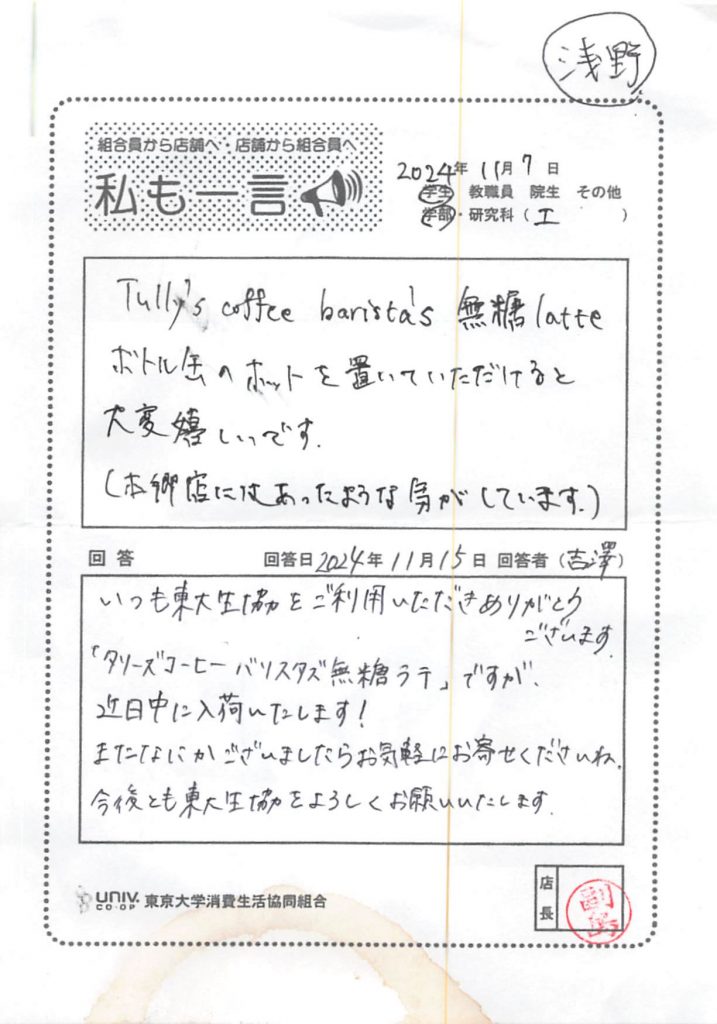 浅野
組合員から店舗へ・店舗から組合員へ
私も一言
2024年 11月 7 日
学生 教職員 院生 その他
学部・研究科（ 工 ）
Tully's coffee barista's 無糖latte
ボトル缶のホットを置いていただけると
大変嬉しいです.
(本郷店にはあったような気がしています.)
回答 回答日2024年11月15日 回答者（吉澤）
いつも東大生協をご利用いただきありがとう
ございます.
「タリーズコーヒー バリスタズ無糖ラテ」ですが、
近日中に入荷いたします!
またなにかございましたらお気軽にお寄せくださいね.
今後とも東大生協をよろしくお願いいたします.
UNIV. CO-OP 東京大学消費生活協同組合
店長